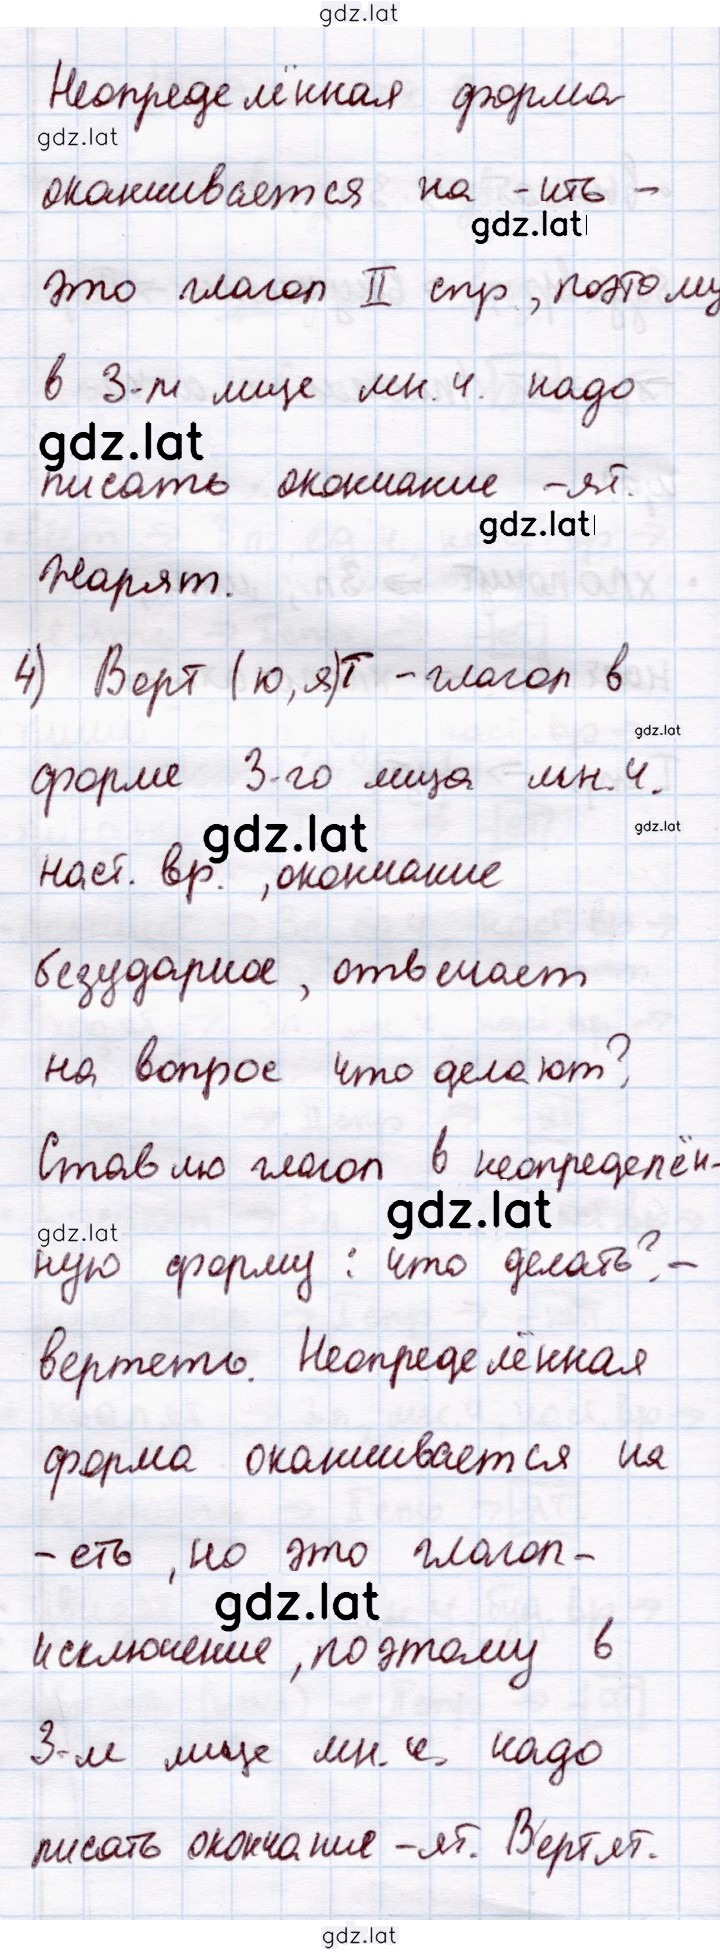 gdz.lat
Неопределённая форма
gdz.lat
оканчивается на -ить -
gdz.lat
это глагол II спр., поэтому
в 3-м лице мн.ч. надо
gdz.lat
писать окончание -ят.
gdz.lat
Жарят.
4) Верт(ю,я)т - глагол в
gdz.lat
форме 3-го лица мн.ч.
gdz.lat
gdz.lat
наст. вр., окончание
безударное, отвечает
на вопрос что делают?
Ставлю глагол в неопределён-
gdz.lat
gdz.lat
ную форму: что делать? -
вертеть. Неопределённая
форма оканчивается на
-еть, но это глагол-
gdz.lat
исключение, поэтому в
3-м лице мн.ч. надо
писать окончание -ят. Вертят.
gdz.lat